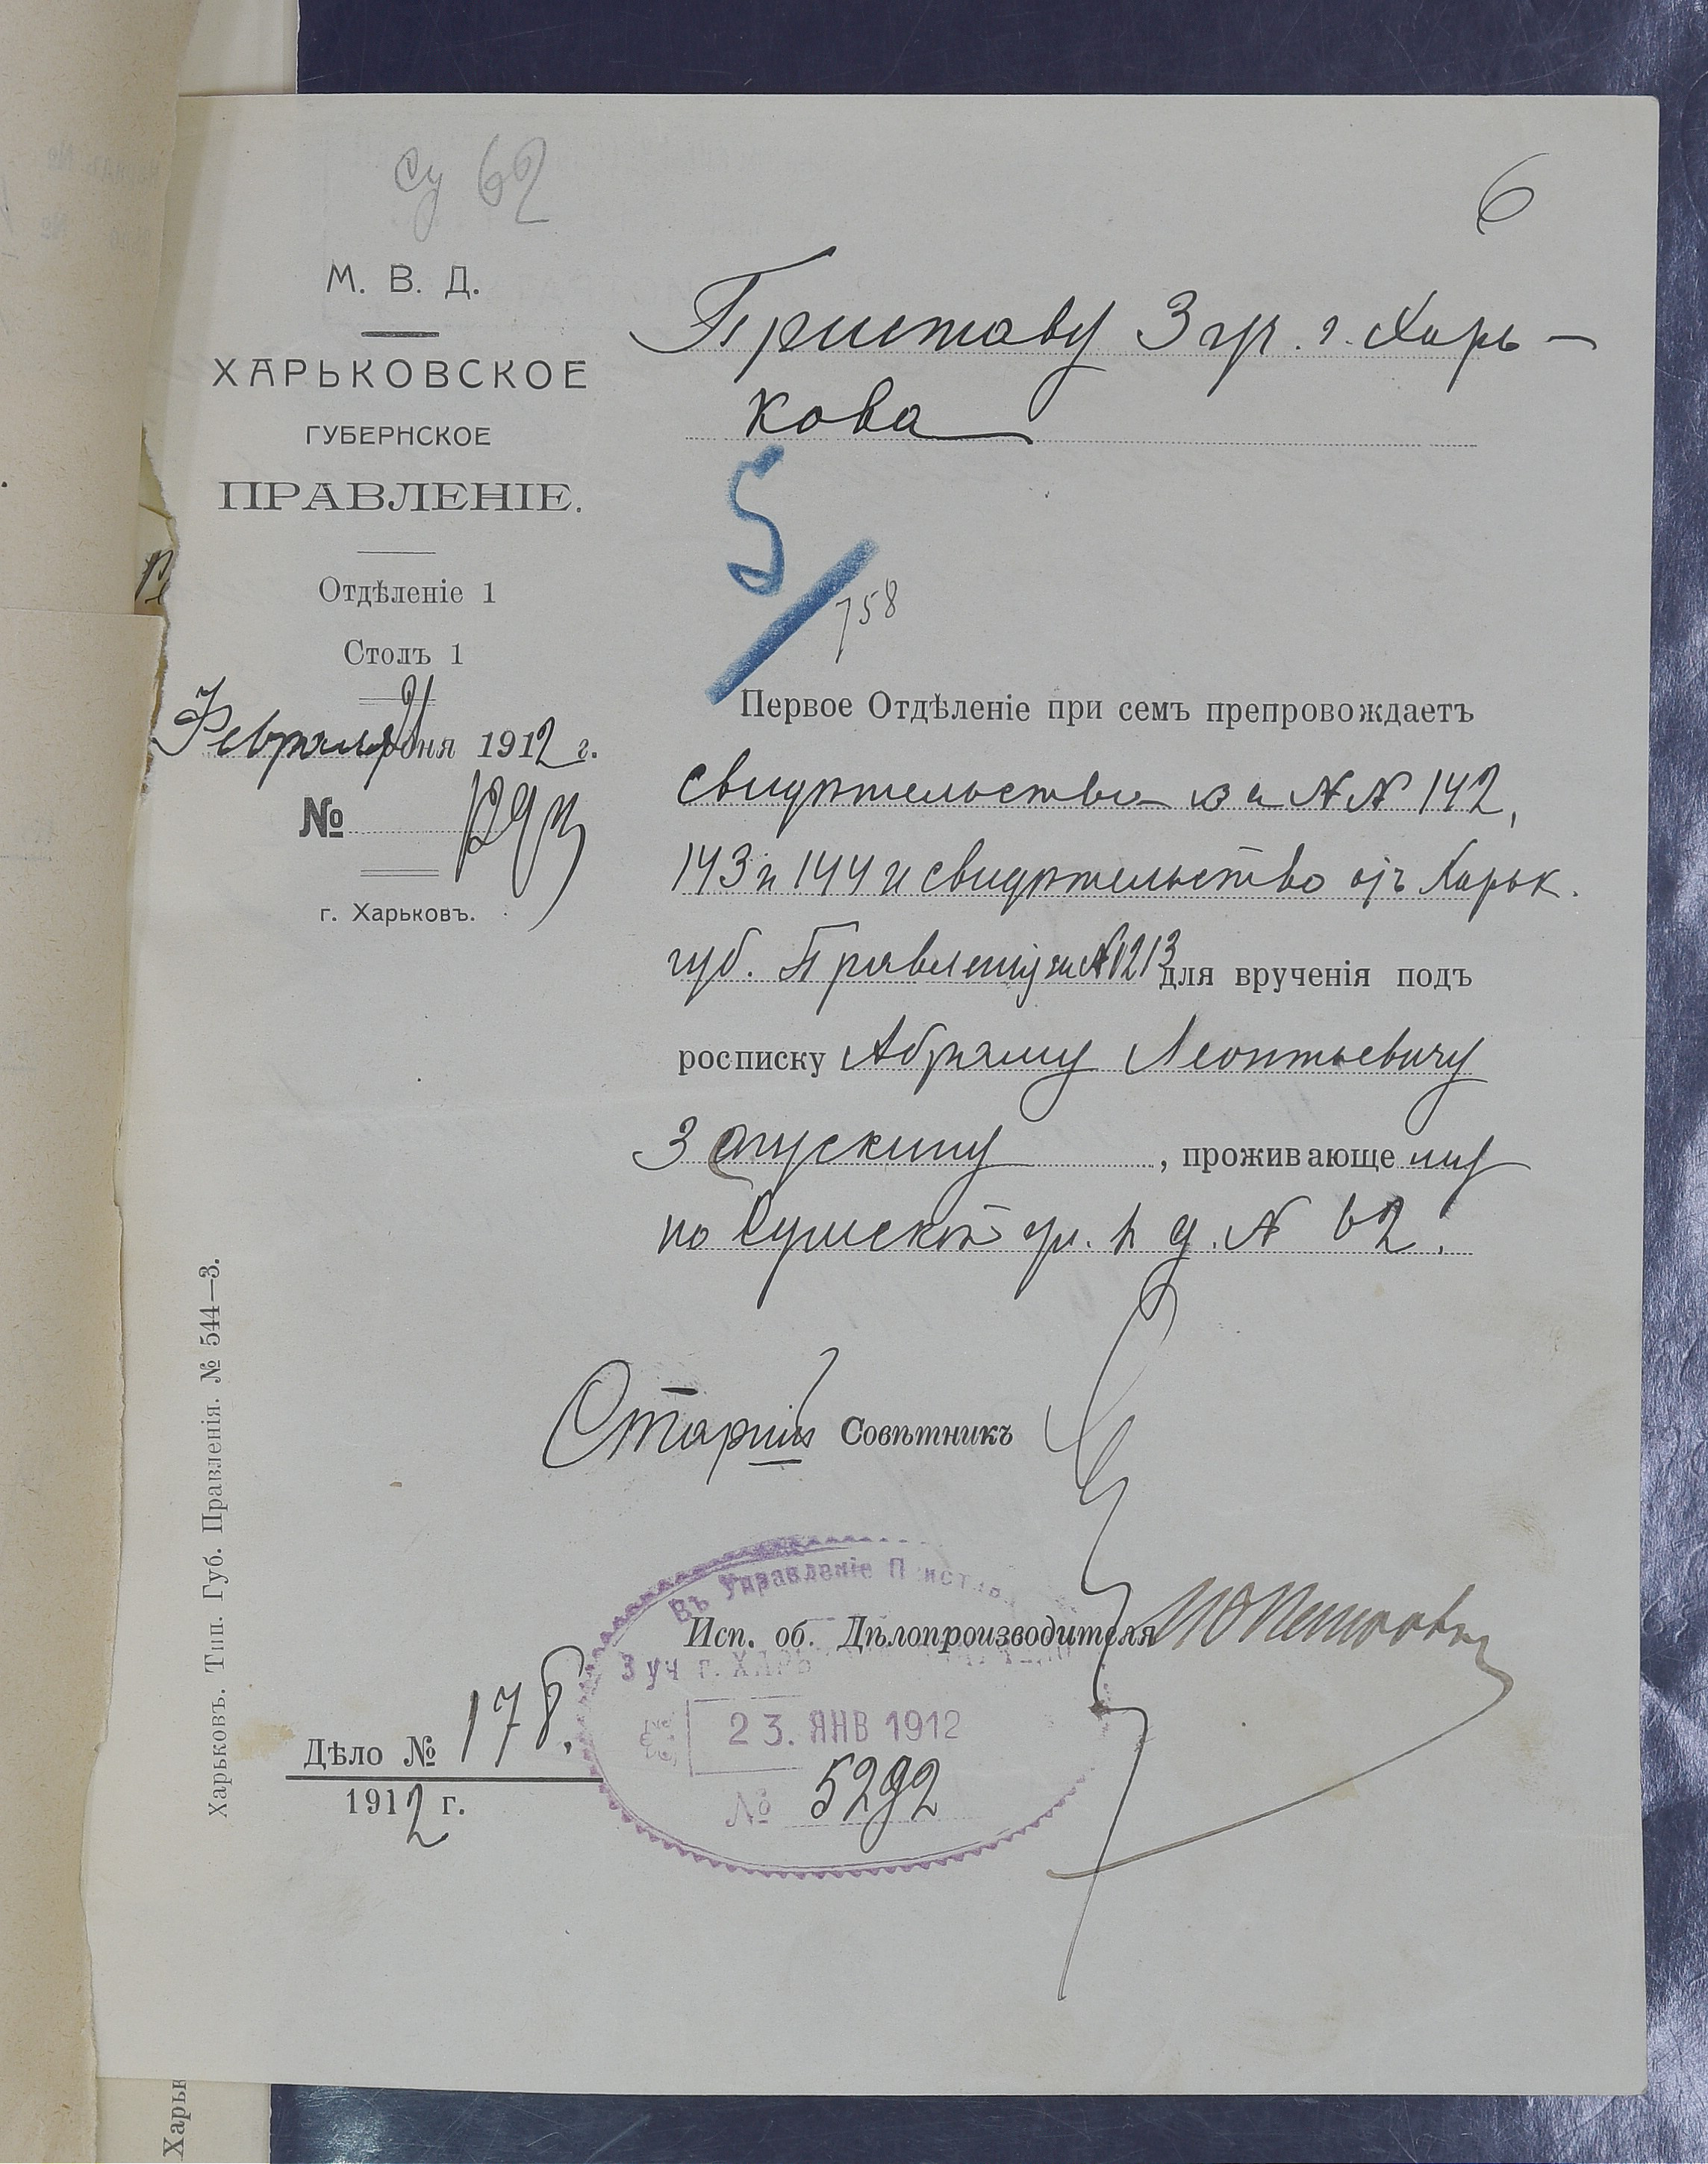 Су 62
6
М. В. Д.
ХАРЬКОВСКОЕ
ГУБЕРНСКОЕ
ПРАВЛЕНІЕ.
Отдѣленіе 1
Столъ 1
Февраля дня 1912 г.
№
г. Харьковъ.
Приставу 3 уч. г. Харь-
кова
5
758
Первое Отдѣленіе при семъ препровождаетъ
свидѣтельства за №№ 142,
143 и 144 и свидѣтельство отъ Харьк.
губ. Правленія за № 1213 для врученія подъ
росписку Абраму Леонтьевичу
Запускину, проживающему
по Сумской ул. в д. № 62.
Старшій Совѣтникъ
Исп. об. Дѣлопроизводителя
Въ Управленіе Пристава
3 уч г. ХАРЬ
23. ЯНВ 1912
№ 5292
Дѣло № 178.
1912 г.
Харьковъ. Тип. Губ. Правленія. № 544—3.
Харьк